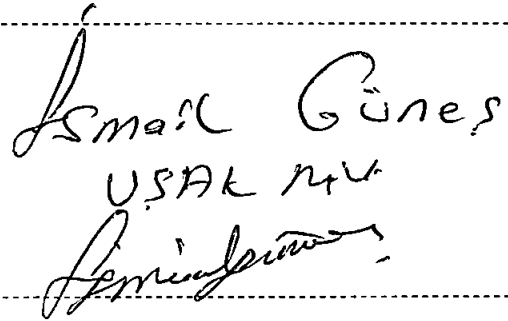 İsmail Güneş
UŞAK MV.